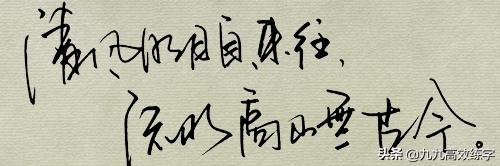 清风明月自来往，
流水高山无古今。
头条 @九九高效练字